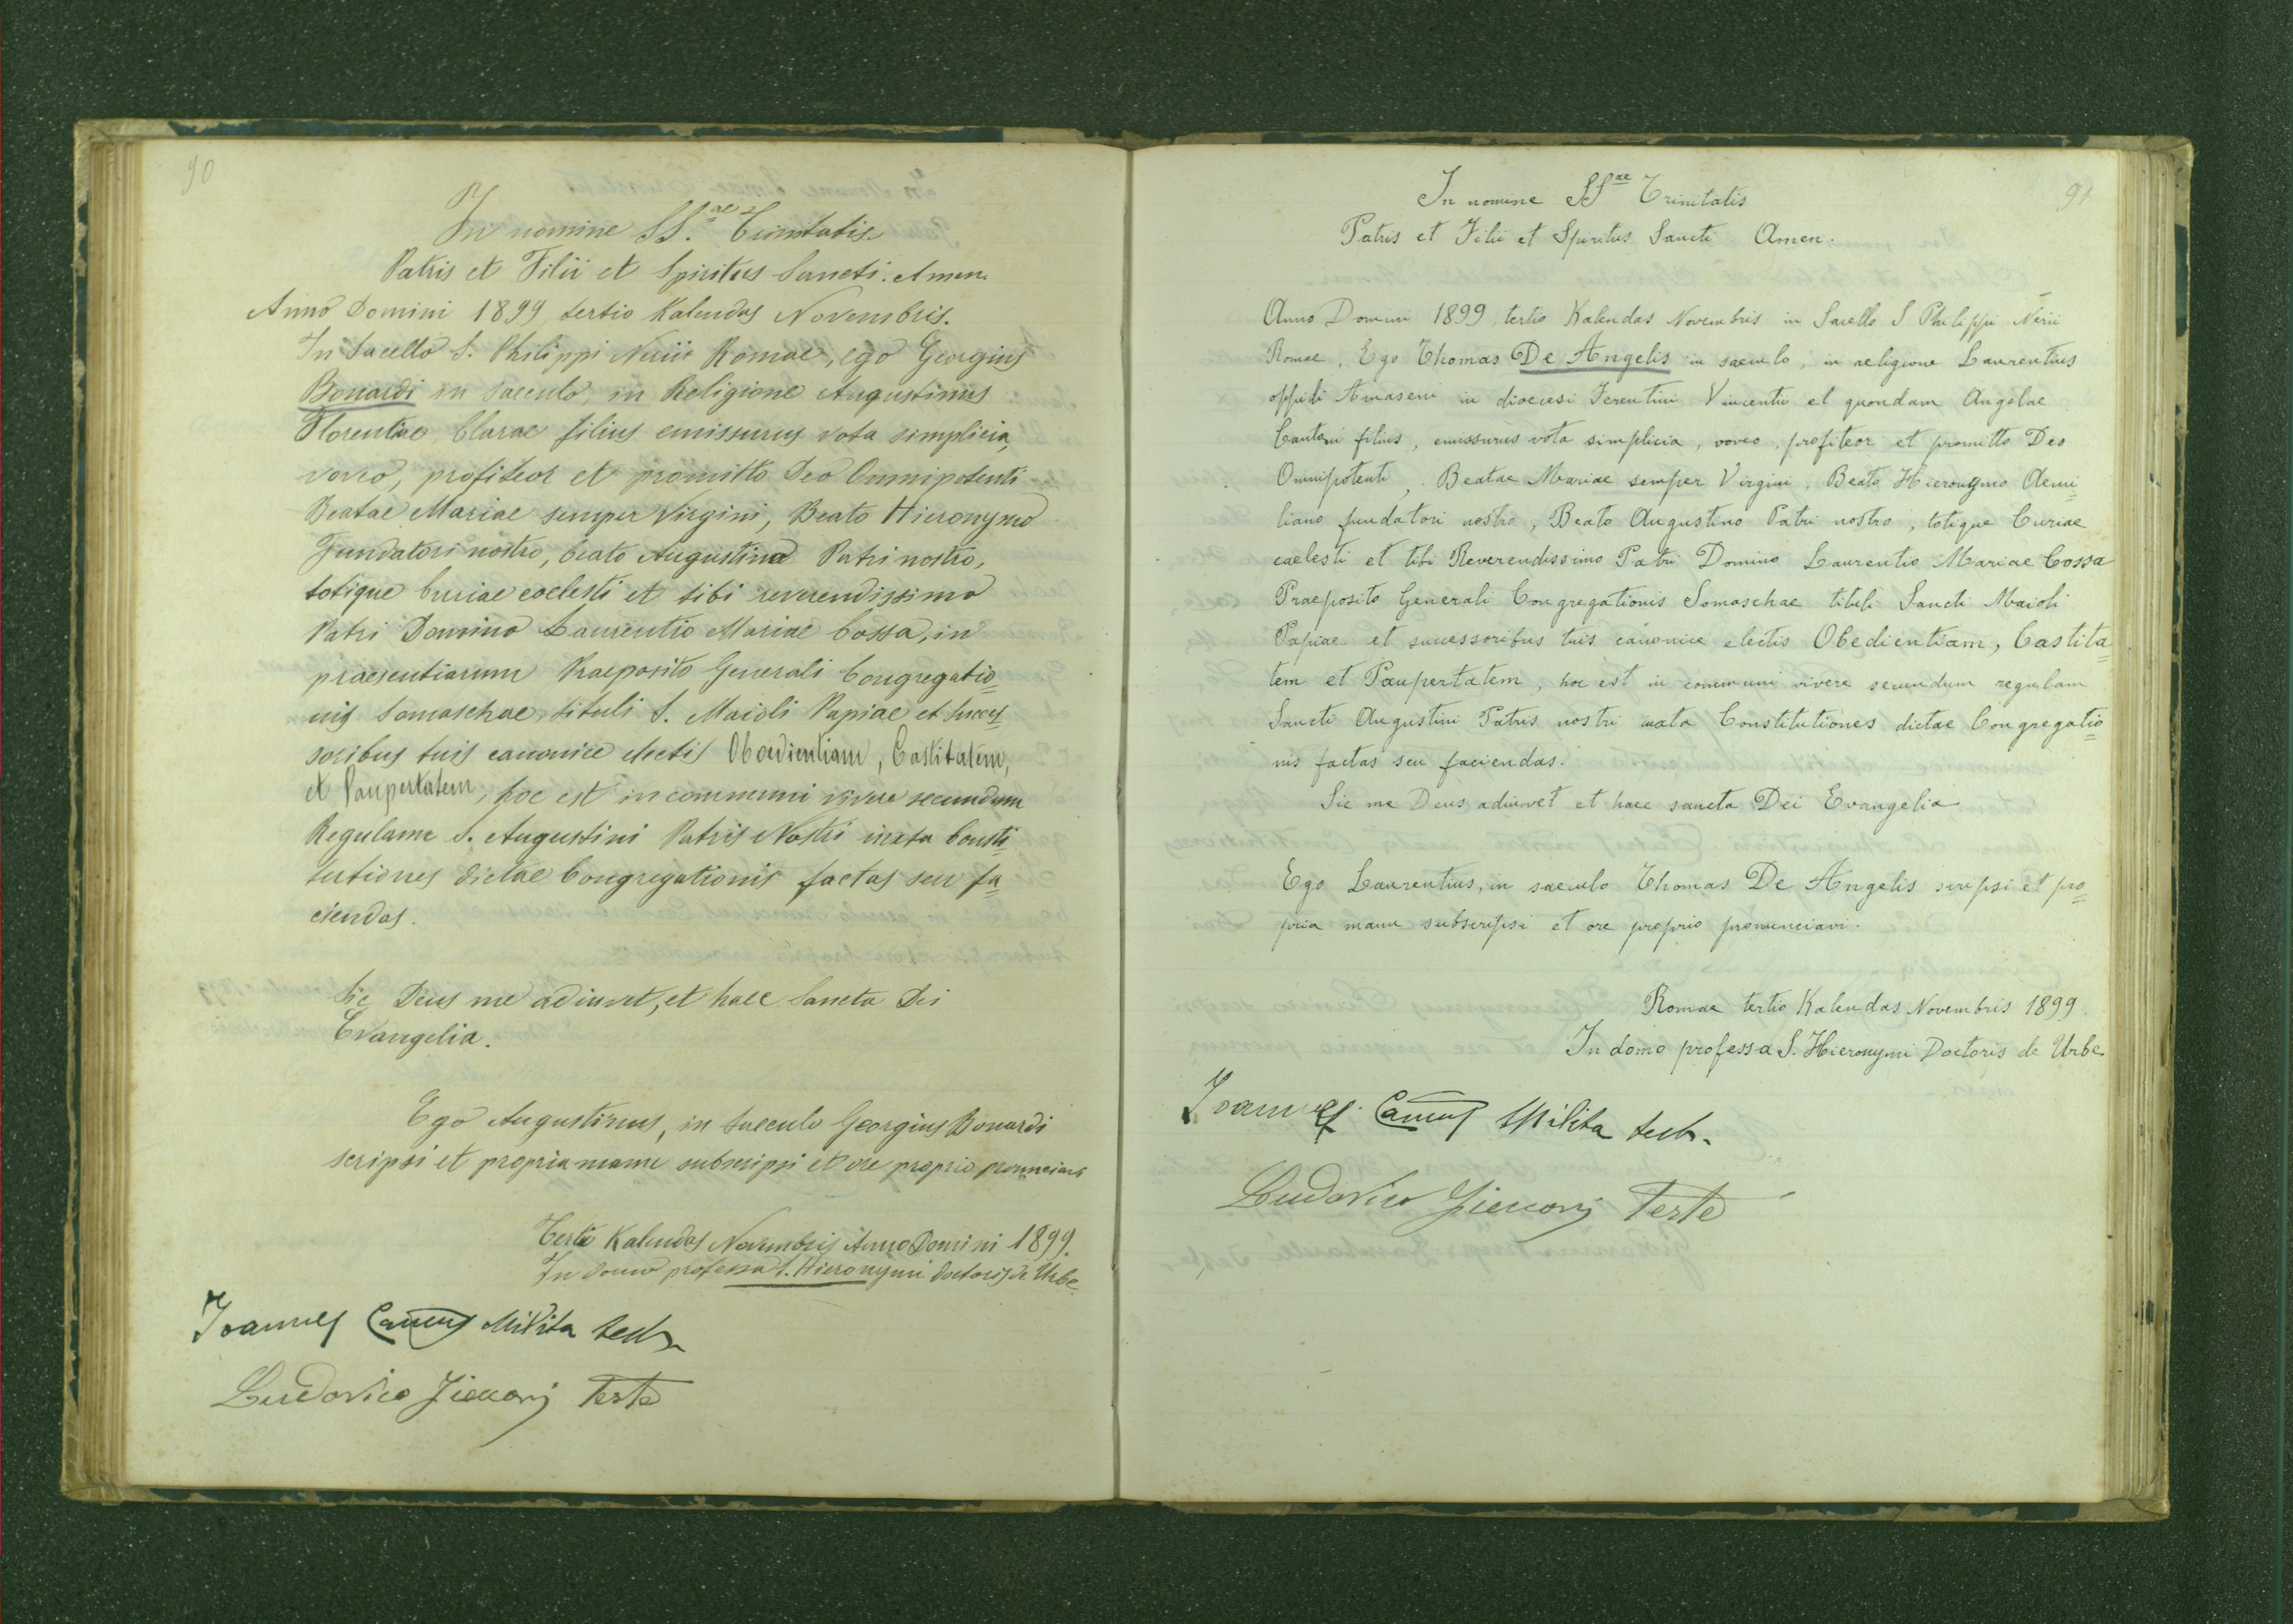 90
In nomine SS.ae Trinitatis
Patris et Filii et Spiritus Sancti. Amen.
Anno Domini 1899, tertio Kalendas Novembris.
In Sacello S. Philippi Nerii Romae, ego Georgius
Bonardi in saeculo, in Religione Augustinus
Florentiae, Clarae filius emissurus vota simplicia,
voveo, profiteor et promitto Deo Omnipotenti
Beatae Mariae semper Virgini, Beato Hieronymo
Fundatori nostro, beato Augustino Patri nostro,
totique Curiae coelesti et tibi reverendissimo
Patri Domino Laurentio Mariae Cossa, in
praesentiarum Praeposito Generali Congregatio=
nis Somaschae, tituli S. Maioli Papiae et succes=
soribus tuis canonice electis Oboedientiam, Castitatem,
et Paupertatem, hoc est in communi vivere secundum
Regulam S. Augustini Patris Nostri iuxta Consti=
tutiones dictae Congregationis factas seu fa=
ciendas.
Sic Deus me adiuvet, et haec Sancta Dei
Evangelia.
Ego Augustinus, in saeculo Georgius Bonardi
scripsi et propria manu subscripsi et ore proprio pronunciavi
Tertio Kalendas Novembris Anno Domini 1899.
In domo professa S. Hieronymi doctoris de Urbe.
Joannes Camus Milita testis
Ludovico Testo
91
In nomine SSae Trinitatis
Patris et Filii et Spiritus Sancti Amen.
Anno Domini 1899 tertio Kalendas Novembris in Sacello S Philippi Nerii
Romae, Ego Thomas De Angelis in saeculo, in religione Laurentius
oppidi Amaseni in dioecesi Ferentini Vincentii et quondam Angelae
Cantoni filius, emissurus vota simplicia, voveo, profiteor et promitto Deo
Omnipotenti, Beatae Mariae semper Virgini, Beato Hieronymo Aemi=
liano fundatori nostro, Beato Augustino Patri nostro, totique Curiae
caelesti et tibi Reverendissimo Patri Domino Laurentio Mariae Cossa
Praeposito Generali Congregationis Somaschae tituli Sancti Maioli
Papiae et successoribus tuis canonice electis Obedientiam, Castita=
tem et Paupertatem, hoc est in communi vivere secundum regulam
Sancti Augustini Patris nostri iuxta Constitutiones dictae Congregatio=
nis factas seu faciendas.
Sic me Deus adiuvet et haec sancta Dei Evangelia
Ego Laurentius, in saeculo Thomas De Angelis scripsi et pro=
pria manu subscripsi et ore proprio pronunciavi.
Romae tertio Kalendas Novembris 1899.
In domo professa S. Hieronymi Doctoris de Urbe.
Joannes Camus Milita testis
Ludovico Teste